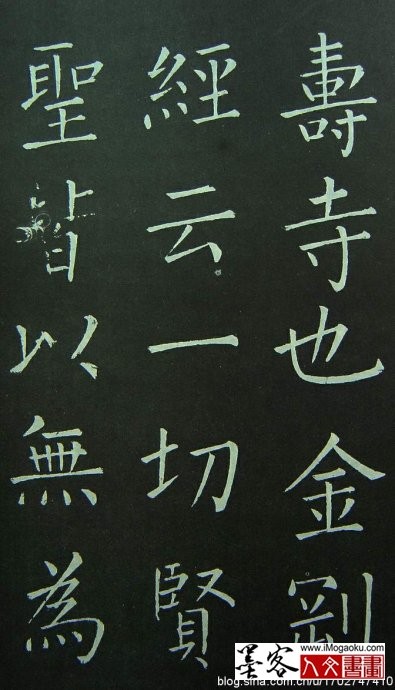 壽寺也金剛
經云一切賢
聖皆以無為
www.iMogaoku.com
墨客
人文書畫
blog.sina.com.cn/u/1702747410